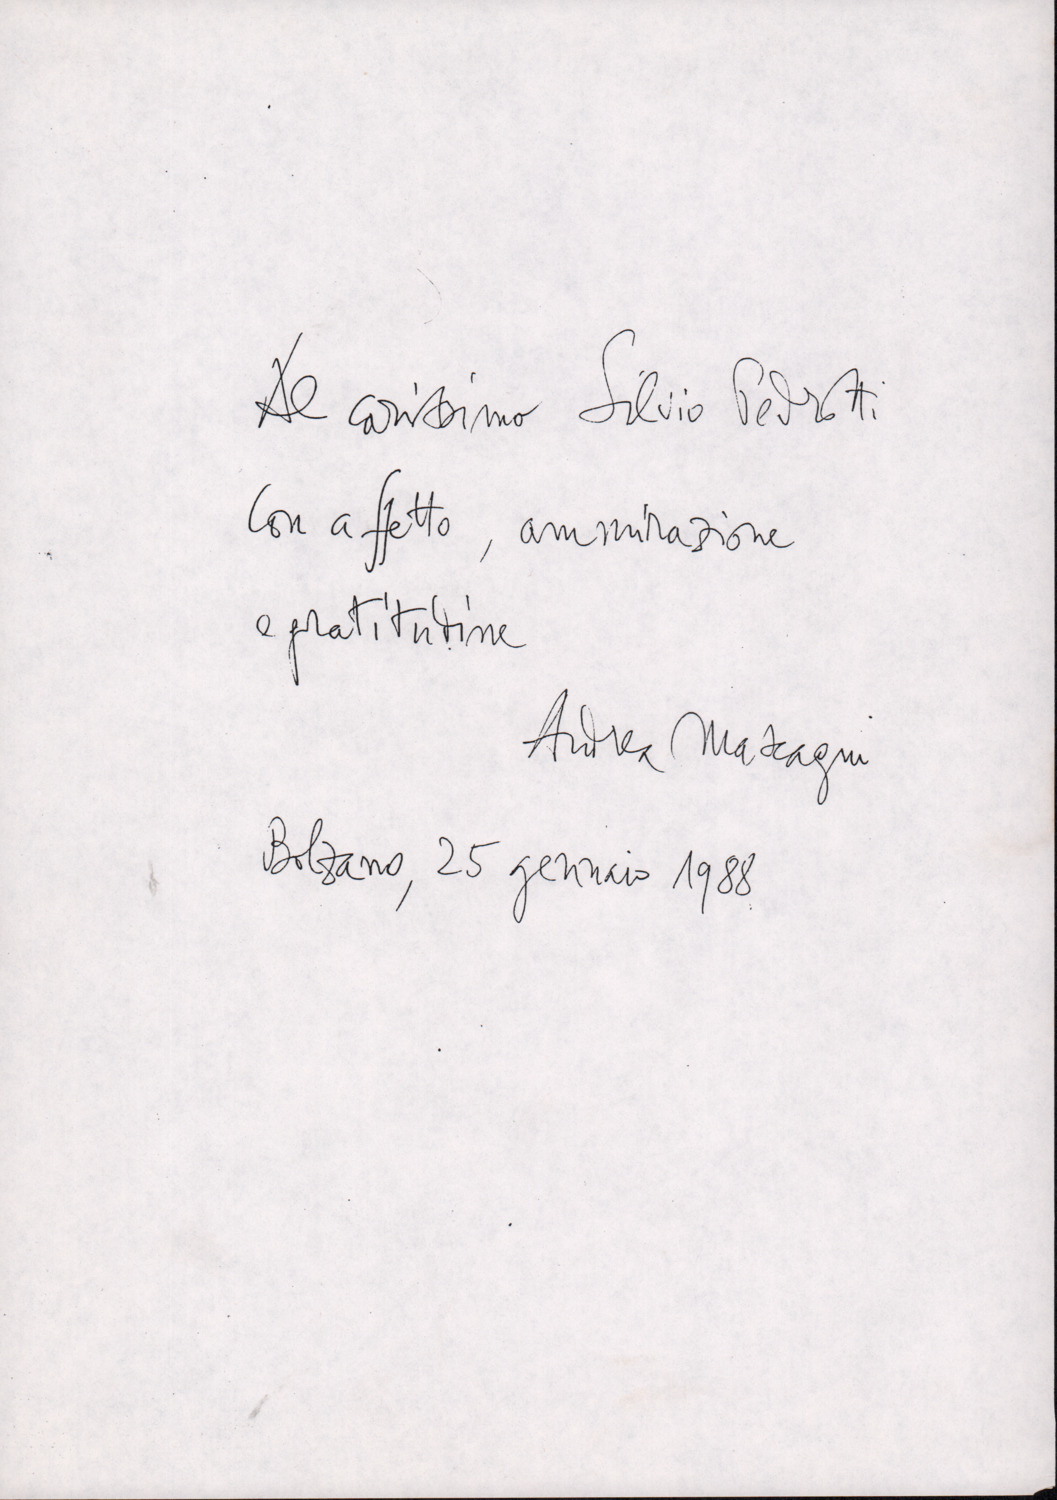 Al carissimo Silvio Pedrotti
Con affetto, ammirazione
e gratitudine
Andrea Mascagni
Bolzano, 25 gennaio 1988